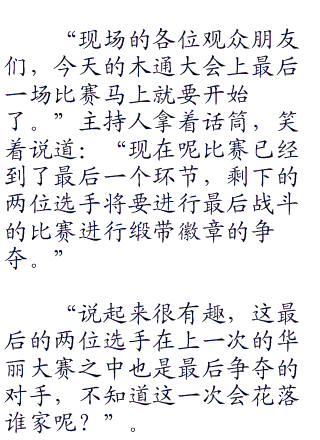 “现场的各位观众朋友
们，今天的木通大会上最后
一场比赛马上就要开始
了。”主持人拿着话筒，笑
着说道：“现在呢比赛已经
到了最后一个环节，剩下的
两位选手将要进行最后战斗
的比赛进行缎带徽章的争
夺。”
“说起来很有趣，这最
后的两位选手在上一次的华
丽大赛之中也是最后争夺的
对手，不知道这一次会花落
谁家呢？”。